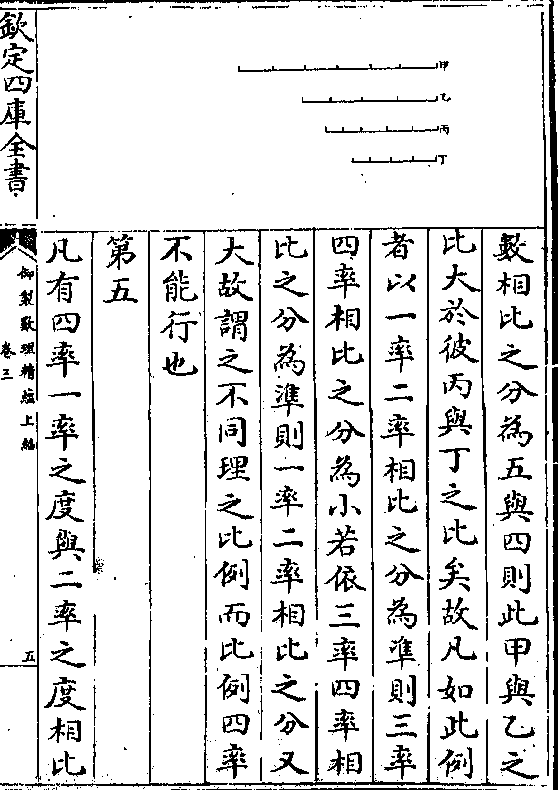 甲
乙
丙
丁
數相比之分為五與四則此甲與乙之
比大於彼丙與丁之比矣故凡如此例
者以一率二率相比之分為準則三率
四率相比之分為小若依三率四率相
比之分為準則一率二率相比之分又
大故謂之不同理之比例而比例四率
不能行也
第五
凡有四率一率之度與二率之度相比
欽定四庫全書
御製數理精蘊上編
卷三
五